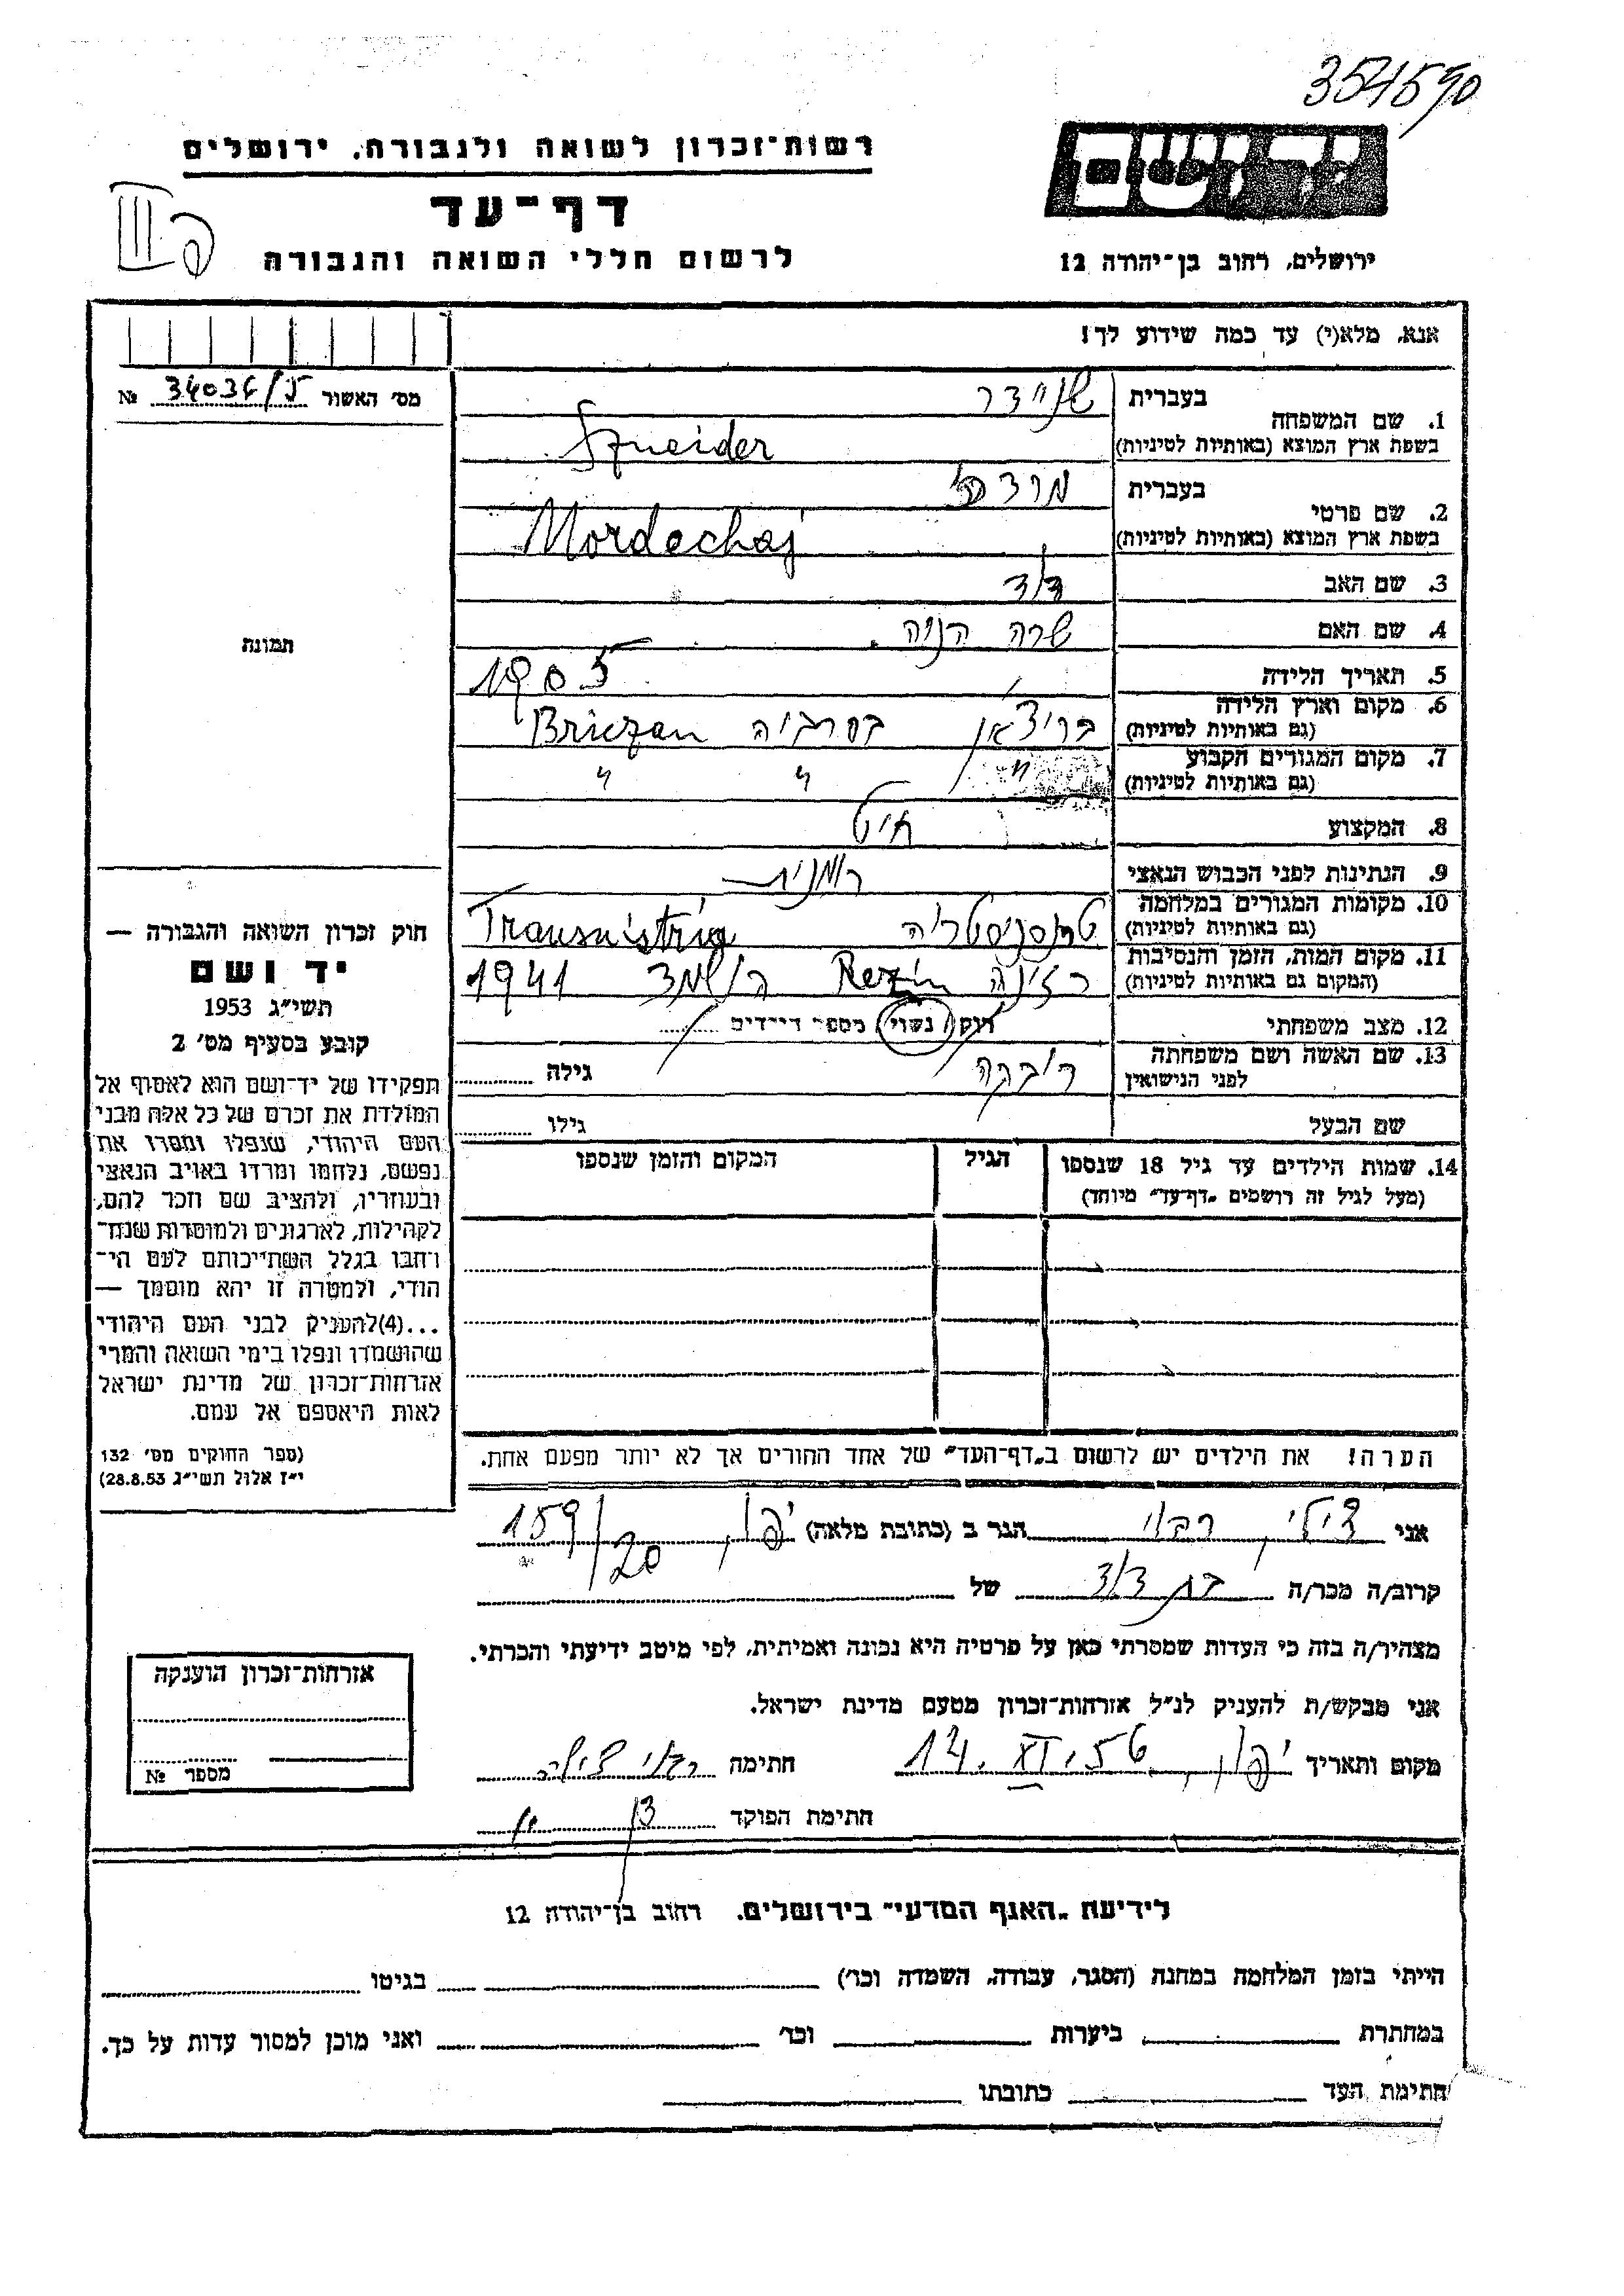 354590
רשות־זכרון לשואה ולגבורה, ירושלים
יד ושם
דף־עד
לרשום חללי השואה והגבורה
ירושלים, רחוב בן־יהודה 12
אנא, מלא(י) עד כמה שידוע לך!
מס' האשור № 34034/5
בעברית שניידר
1. שם המשפחה
בשפת ארץ המוצא (באותיות לטיניות) Szneider
בעברית מרדכי
2. שם פרטי
בשפת ארץ המוצא (באותיות לטיניות) Mordechaj
3. שם האב דוד
4. שם האם שרה
תמונה
5. תאריך הלידה 1905
6. מקום וארץ הלידה
(גם באותיות לטיניות) בריצ'אן בסרביה Briczan
7. מקום המגורים הקבוע
(גם באותיות לטיניות) " " "
8. המקצוע חיט
9. הנתינות לפני הכבוש הנאצי רומנית
10. מקומות המגורים במלחמה
(גם באותיות לטיניות) טרנסניסטריה Transnistria
11. מקום המות, הזמן והנסיבות
(המקום גם באותיות לטיניות) רזינה Rezin הושמד 1941
12. מצב משפחתי רווק / נשוי / מספר הילדים
13. שם האשה ושם משפחתה
לפני הנישואין רבקה גילה
שם הבעל גילו
14. שמות הילדים עד גיל 18 שנספו הגיל המקום והזמן שנספו
(מעל לגיל זה רושמים „דף־עד” מיוחד)
הערה! את הילדים יש לרשום ב„דף־העד” של אחד ההורים אך לא יותר מפעם אחת.
חוק זכרון השואה והגבורה —
יד ושם
תשי״ג 1953
קובע בסעיף מס' 2
תפקידו של יד־ושם הוא לאסוף אל
המולדת את זכרם של כל אלה מבני
העם היהודי, שנפלו ומסרו את
נפשם, נלחמו ומרדו באויב הנאצי
ובעוזריו, ולהציב שם וזכר להם,
לקהילות, לארגונים ולמוסדות שנח־
רחבו בגלל השתייכותם לעם הי־
הודי, ולמטרה זו יהא מוסמך —
...(4)להעניק לבני העם היהודי
שהושמדו ונפלו בימי השואה והמרי
אזרחות־זכרון של מדינת ישראל
לאות היאספם אל עמם.
(ספר החוקים מס' 132
י״ז אלול תשי״ג 28.8.53)
אני הגר ב (כתובת מלאה) יפו, 159/20
קרוב/ה מכר/ה בת דוד של
מצהיר/ה בזה כי העדות שמסרתי כאן על פרטיה היא נכונה ואמיתית, לפי מיטב ידיעתי והכרתי.
אני מבקש/ת להעניק לנ״ל אזרחות־זכרון מטעם מדינת ישראל.
מקום ותאריך יפו, 14.XI.56 חתימה
חתימת הפוקד
אזרחות־זכרון הוענקה
מספר №
לידיעת „האגף המדעי” בירושלים, רחוב בן־יהודה 12
הייתי בזמן המלחמה במחנה (הסגר, עבודה, השמדה וכר') בגיטו
במחתרת ביערות וכר' ואני מוכן למסור עדות על כך.
חתימת העד כתובתו